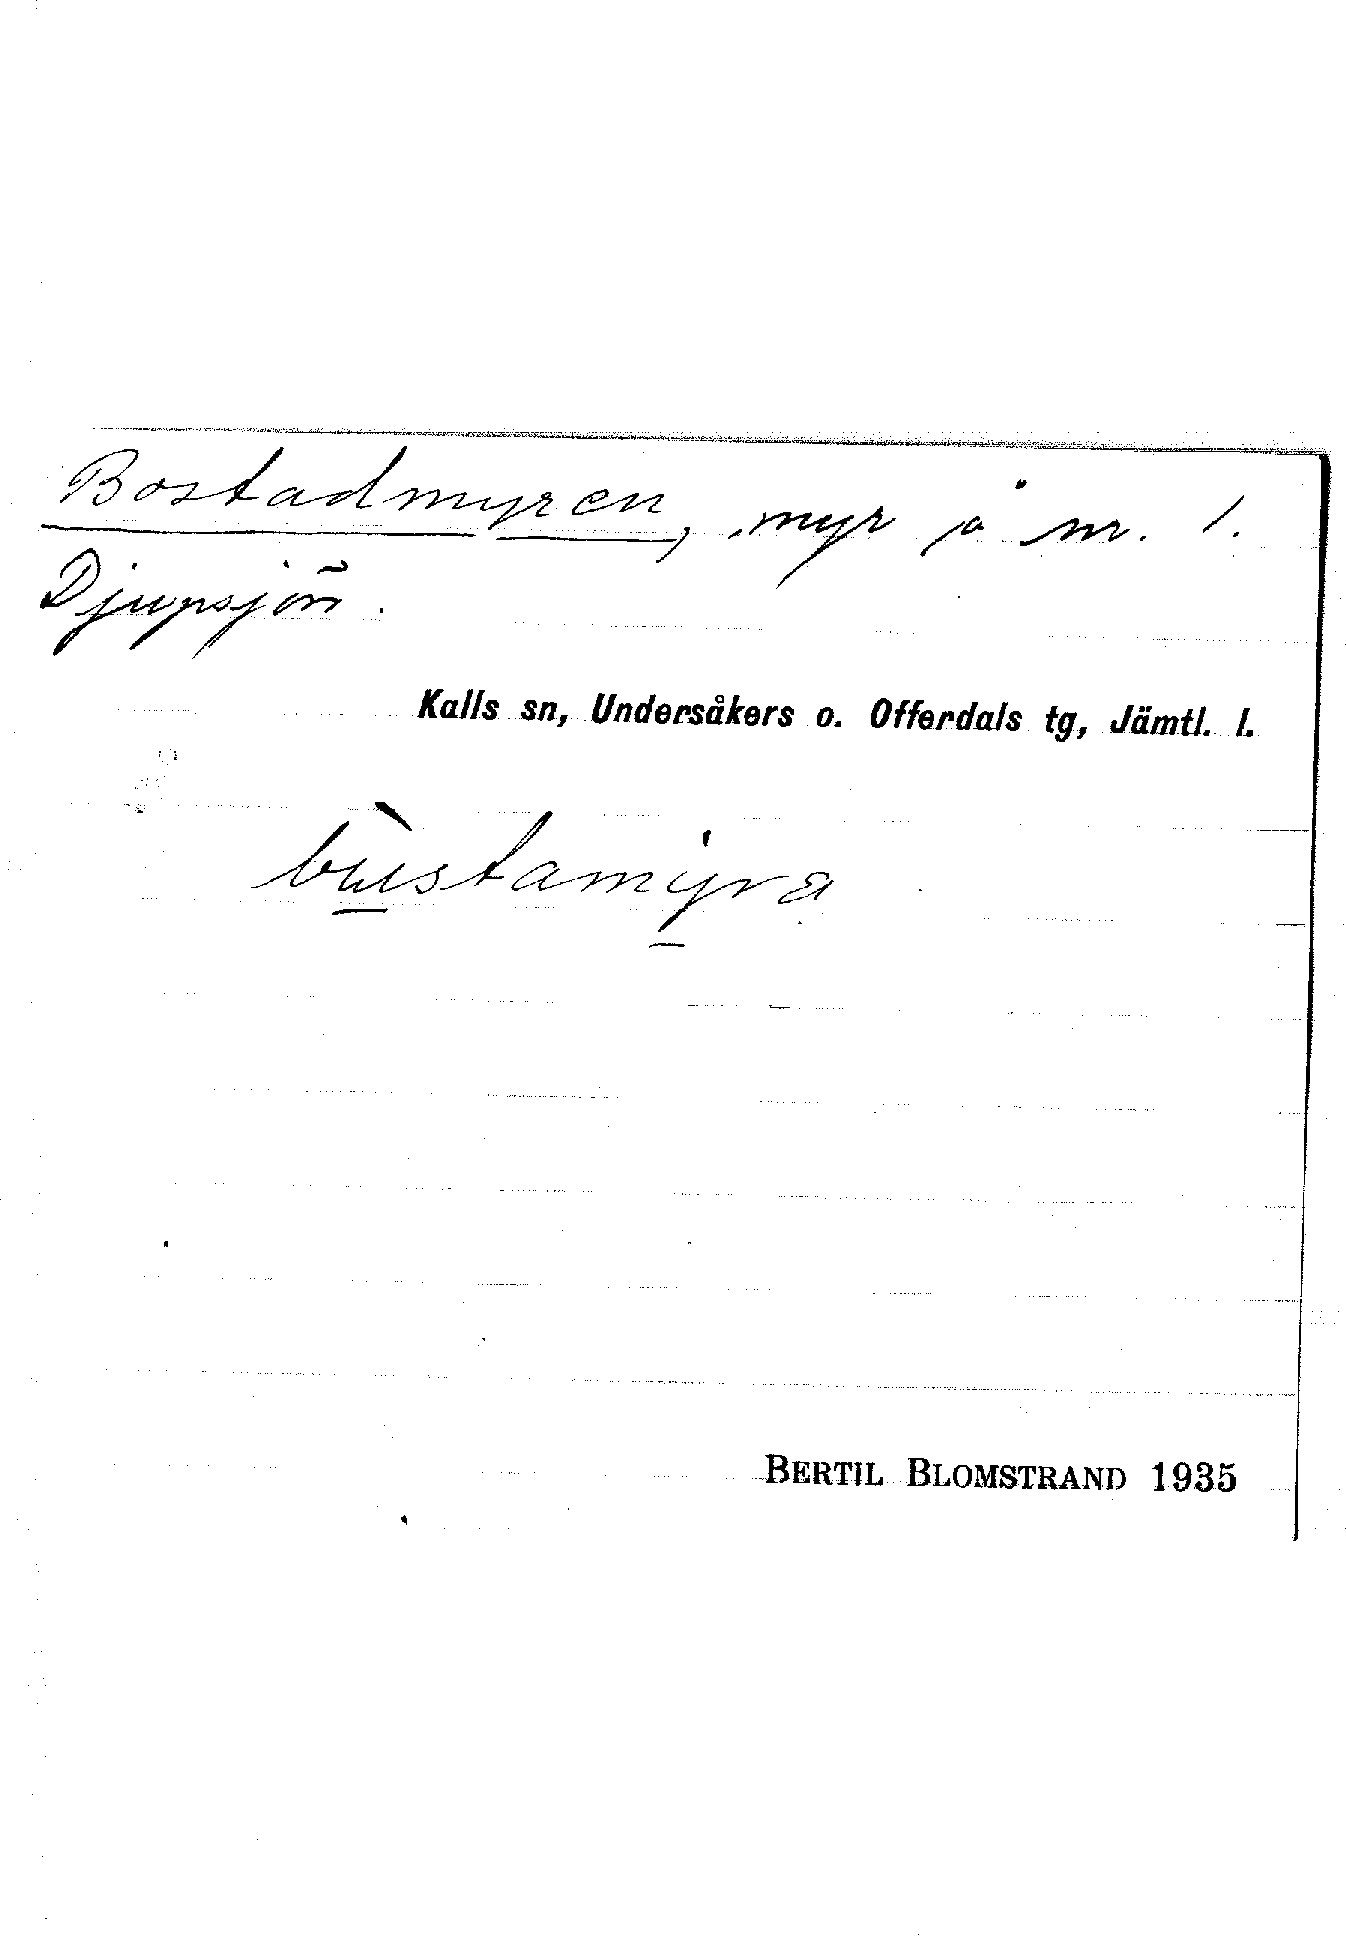 Bostadmyren, myr å nr. 1.
Djupsjön.
Kalls sn, Undersåkers o. Offerdals tg, Jämtl. l.
bùstamyra
BERTIL BLOMSTRAND 1935